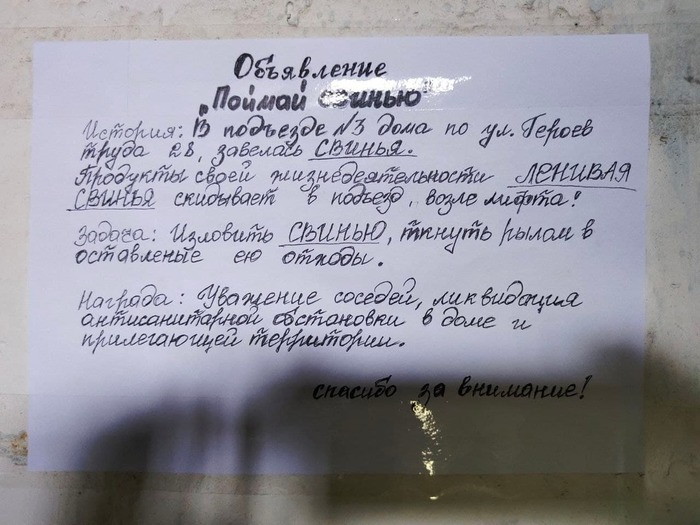 Объявление
„Поймай свинью"
История: В подъезде №3 дома по ул. Героев
труда 28, завелась СВИНЬЯ.
Продукты своей жизнедеятельности ЛЕНИВАЯ
СВИНЬЯ скидывает в подъезд, возле лифта!
Задача: Изловить СВИНЬЮ, ткнуть рылом в
оставленые ею отходы.
Награда: Уважение соседей, ликвидация
антисанитарной обстановки в доме и
прилегающей территории.
спасибо за внимание!